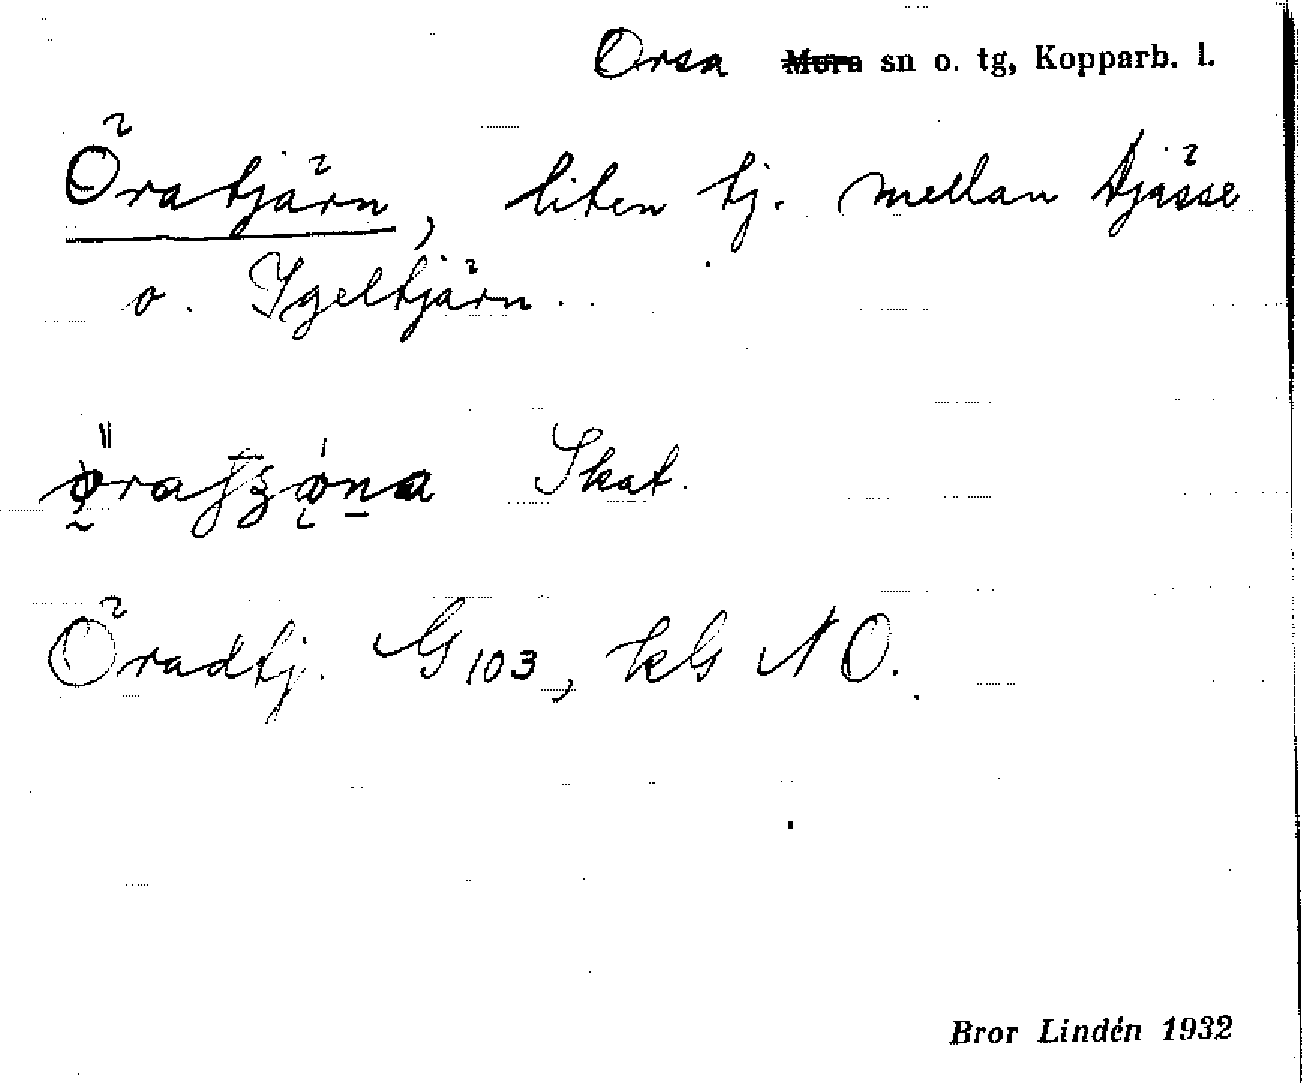 Orsa sn o. tg, Kopparb. l.
Öratjärn, liten tj. mellan Djässe
o. Igeltjärn.
Skat.
Öradtj. G 103, kG NO.
Bror Lindén 1932